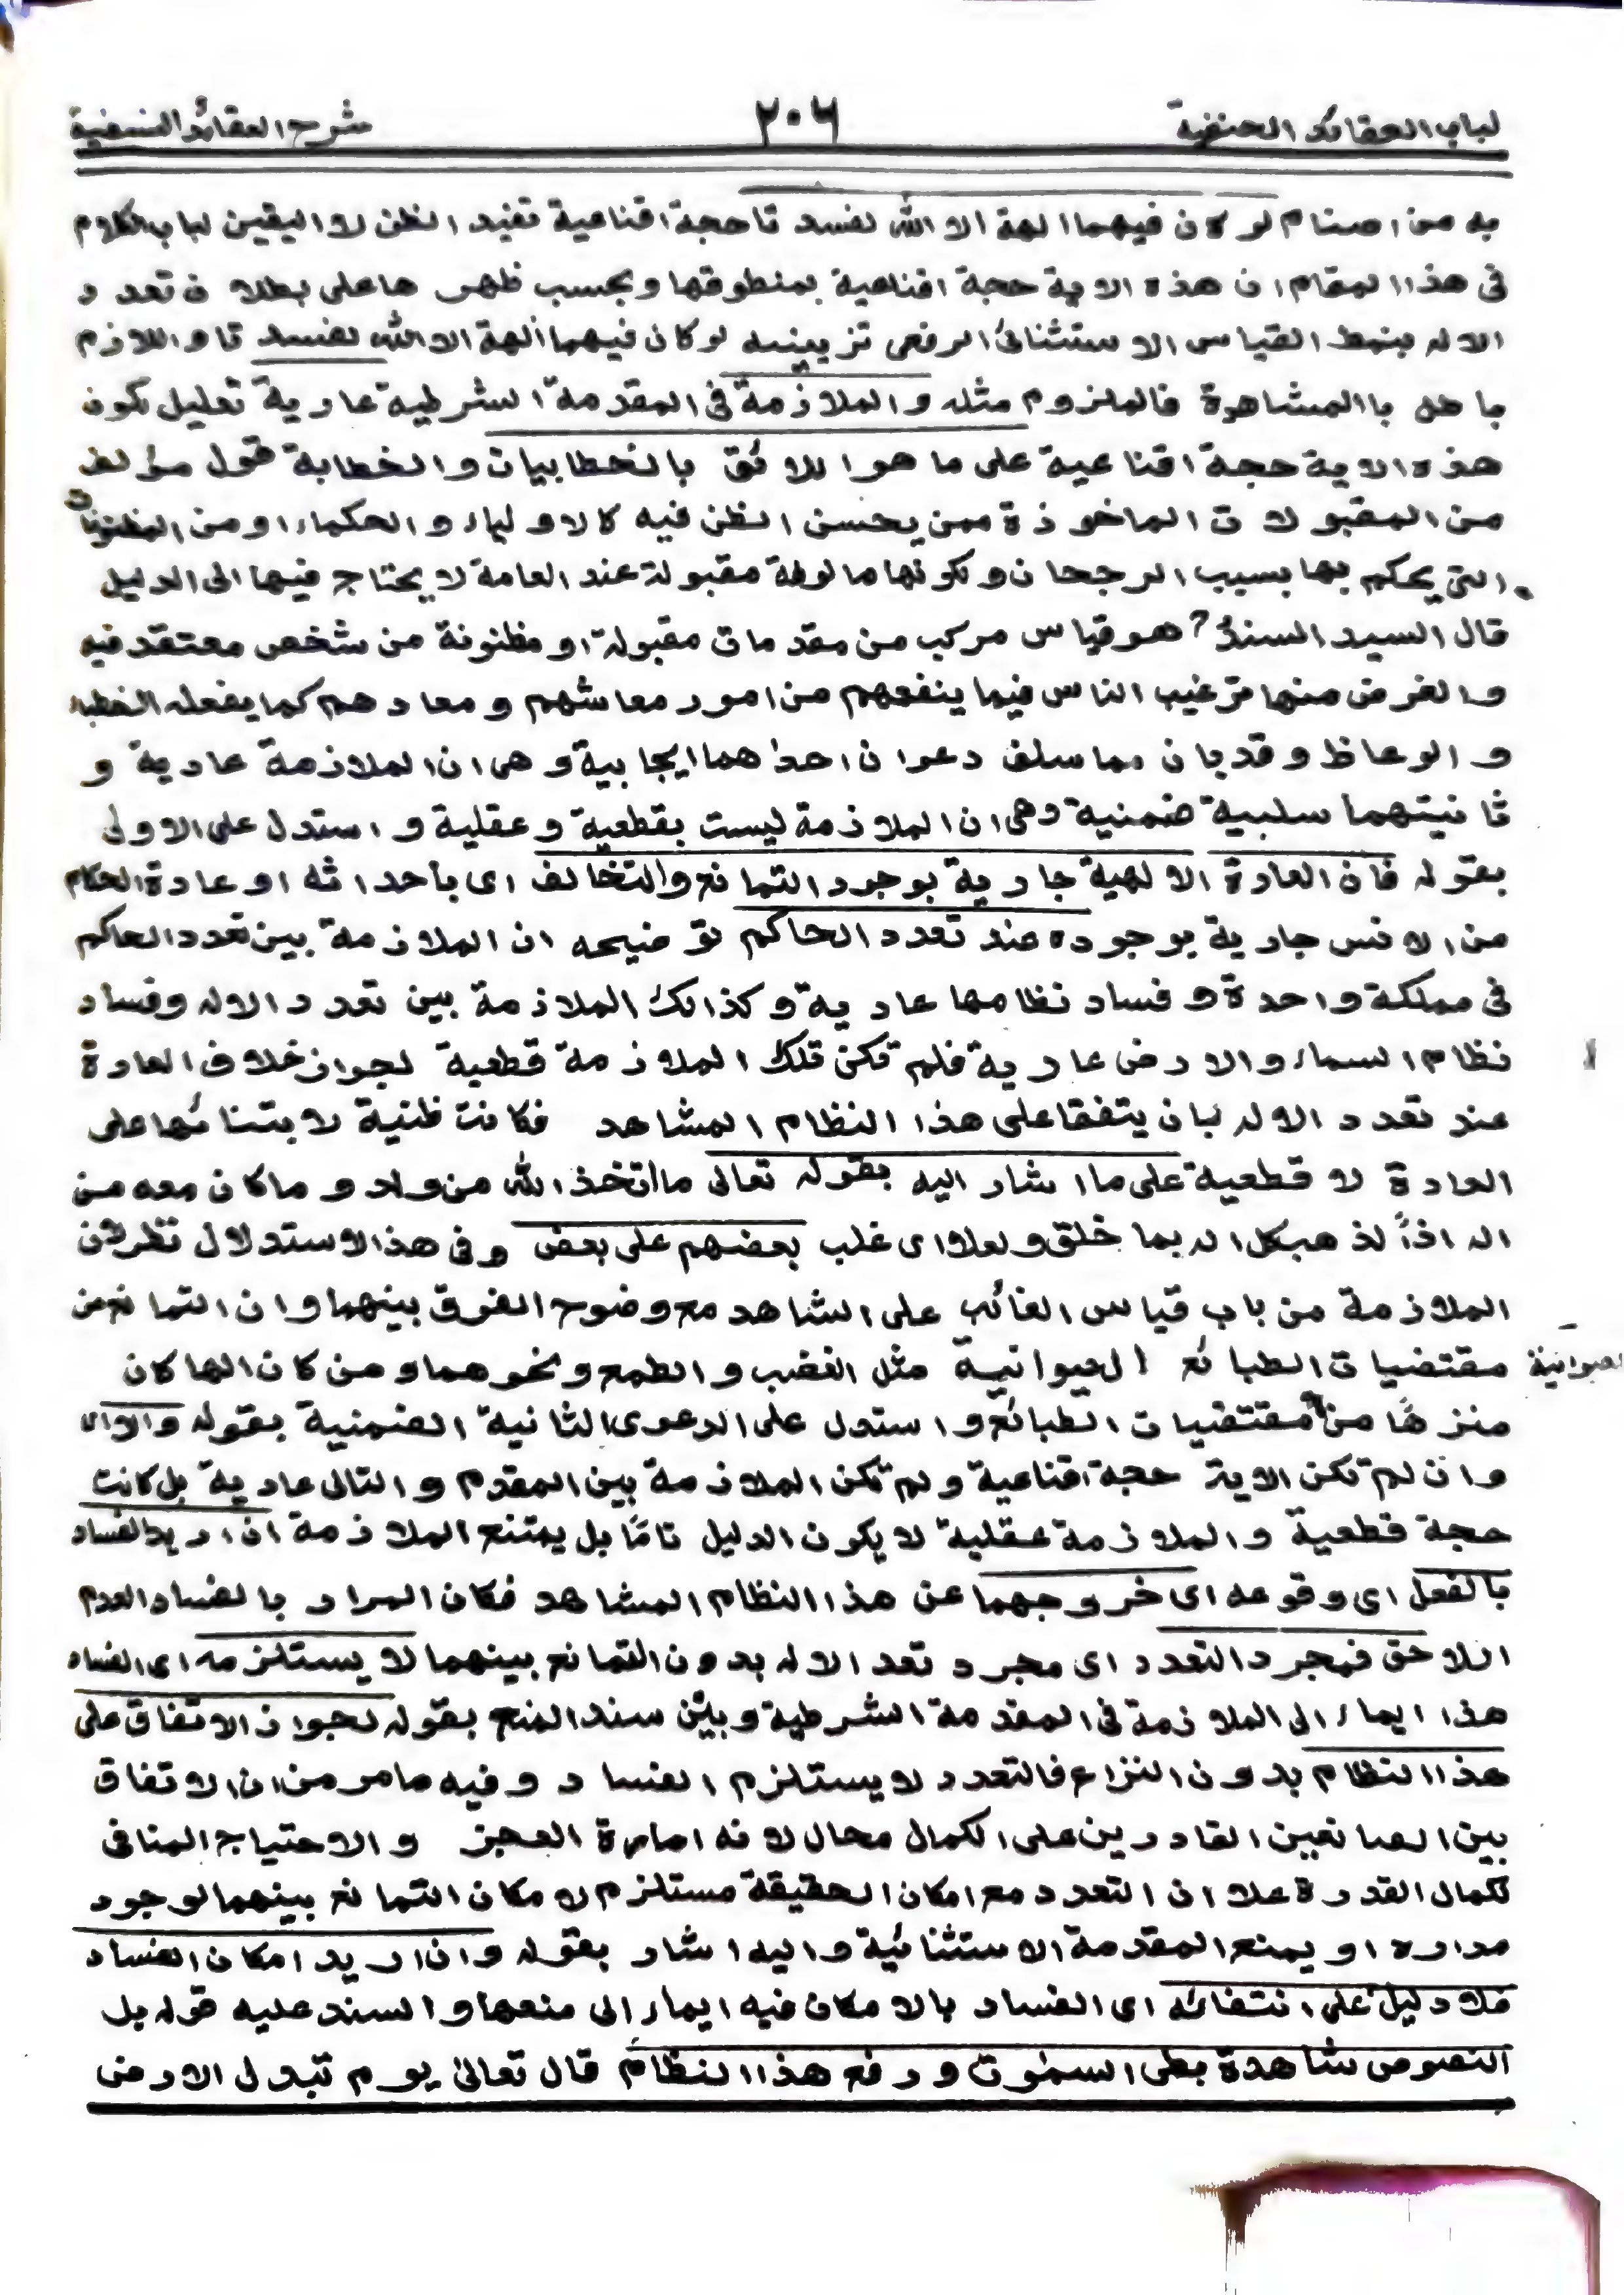 لباب العقائد الحنفية ٢٠٦ شرح العقائد النسفية
به من اصنام لو كان فيهما الهة الا الله لفسدتا حجة اقناعية تفيد الظن لا اليقين لباب الكلام
فى هذا المقام ان هذه الاية حجة اقناعية بمنطوقها وبحسب ظهرها على بطلان تعدد
الاله بنمط القياس الاستثنائى الرفعى تزيينه لو كان فيهما ألهة الا الله لفسدتا واللازم
باطل باالمشاهدة فالملزوم مثله والملازمة فى المقدمة الشرطية عادية تعليل لكون
هذه الاية حجة اقناعية على ما هو اللائق بالخطابيات والخطابة قول مؤلف
من المقبولات الماخوذة ممن يحسن الظن فيه كالاولياء والحكماء او من المظنونات
التى يحكم بها بسبب الرجحان ولكونها مالوفة مقبولة عند العامة لا يحتاج فيها الى الدليل
قال السيد السند هو قياس مركب من مقدمات مقبولة او مظنونة من شخص معتقد فيه
والغرض منها ترغيب الناس فيما ينفعهم من امور معاشهم ومعادهم كما يفعله الخطباء
والوعاظ وقد بان مما سلف دعوان احداهما ايجابية وهى ان الملازمة عادية و
ثانيتهما سلبية ضمنية وهى ان الملازمة ليست بقطعية وعقلية واستدل على الاولى
بقوله فان العادة الالهية جارية بوجود التمانع والتخالف اى بأحداثه او عادة الحكام
من الانس جارية بوجوده عند تعدد الحاكم توضيحه ان الملازمة بين تعدد الحاكم
فى مملكة واحدة وفساد نظامها عادية وكذالك الملازمة بين تعدد الاله وفساد
نظام السماء والارض عادية فلم تكن تلك الملازمة قطعية لجواز خلاف العادة
عند تعدد الاله بان يتفقا على هذا النظام المشاهد فكانت ظنية لابتنائها على
العادة لا قطعية على ما اشار اليه بقوله تعالى ما اتخذ الله من ولد وما كان معه من
اله اذاً لذهب كل اله بما خلق ولعلا اى غلب بعضهم على بعض وفى هذا الاستدلال نظر لان
الملازمة من باب قياس الغائب على الشاهد مع وضوح الفرق بينهما وان التمانع من
مقتضيات الطبائع الحيوانية مثل الغضب والطمع ونحوهما ومن كان الها كان
منزهًا من مقتضيات الطبائع واستدل على الدعوى الثانية الضمنية بقوله والا اى
وان لم تكن الاية حجة اقناعية ولم تكن الملازمة بين المقدم والتالى عادية بل كانت
حجة قطعية والملازمة عقلية لا يكون الدليل تامًا بل يمتنع الملازمة ان اريد الفساد
بالفعل اى وقوعه اى خروجهما عن هذا النظام المشاهد فكان المراد بالفساد العدم
اللاحق فمجرد التعدد اى مجرد تعد الاله بدون التمانع بينهما لا يستلزمه اى الفساد
هذا ايماء الى الملازمة فى المقدمة الشرطية وبيّن سند المنع بقوله لجواز الاتفاق على
هذا النظام بدون النزاع فالتعدد لا يستلزم الفساد وفيه ما مر من ان الاتفاق
بين الصانعين القادرين على الكمال محال لانه امارة العجز والاحتياج المنافى
لكمال القدرة علا ان التعدد مع امكان الحقيقة مستلزم لامكان التمانع بينهما لوجود
مداره او يمنع المقدمة الاستثنائية واليه اشار بقوله وان اريد امكان الفساد
فلا دليل على انتفائه اى الفساد بالامكان فيه ايماء الى منعها والسند عليه قوله بل
النصوص شاهدة بطى السموت ورفع هذا النظام قال تعالىٰ يوم تبدل الارض